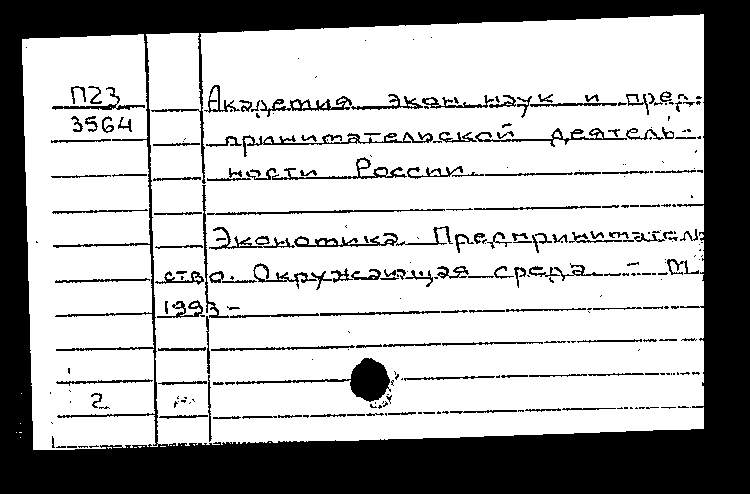 П23 Академия экон. наук и пред-
3564 принимательской деятель-
ности России.
Экономика. Предпринматель
ство. Окружающая среда. - М
1993-
2